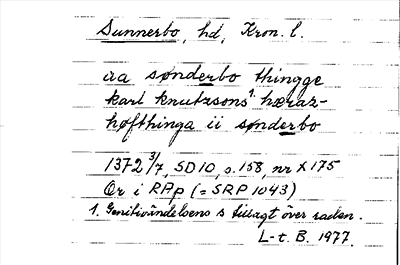 Sunnerbo, hd, Kron. l.
aa sønderbo thingge
karl knutzsons¹· hæraz-
høfthinga ii sønderbo
1372 3/7, SD 10, s. 158, nr X 175
Or i RAp (= SRP 1043)
1. Genitivändelsens s tillagt över raden.
L-t. B. 1977.